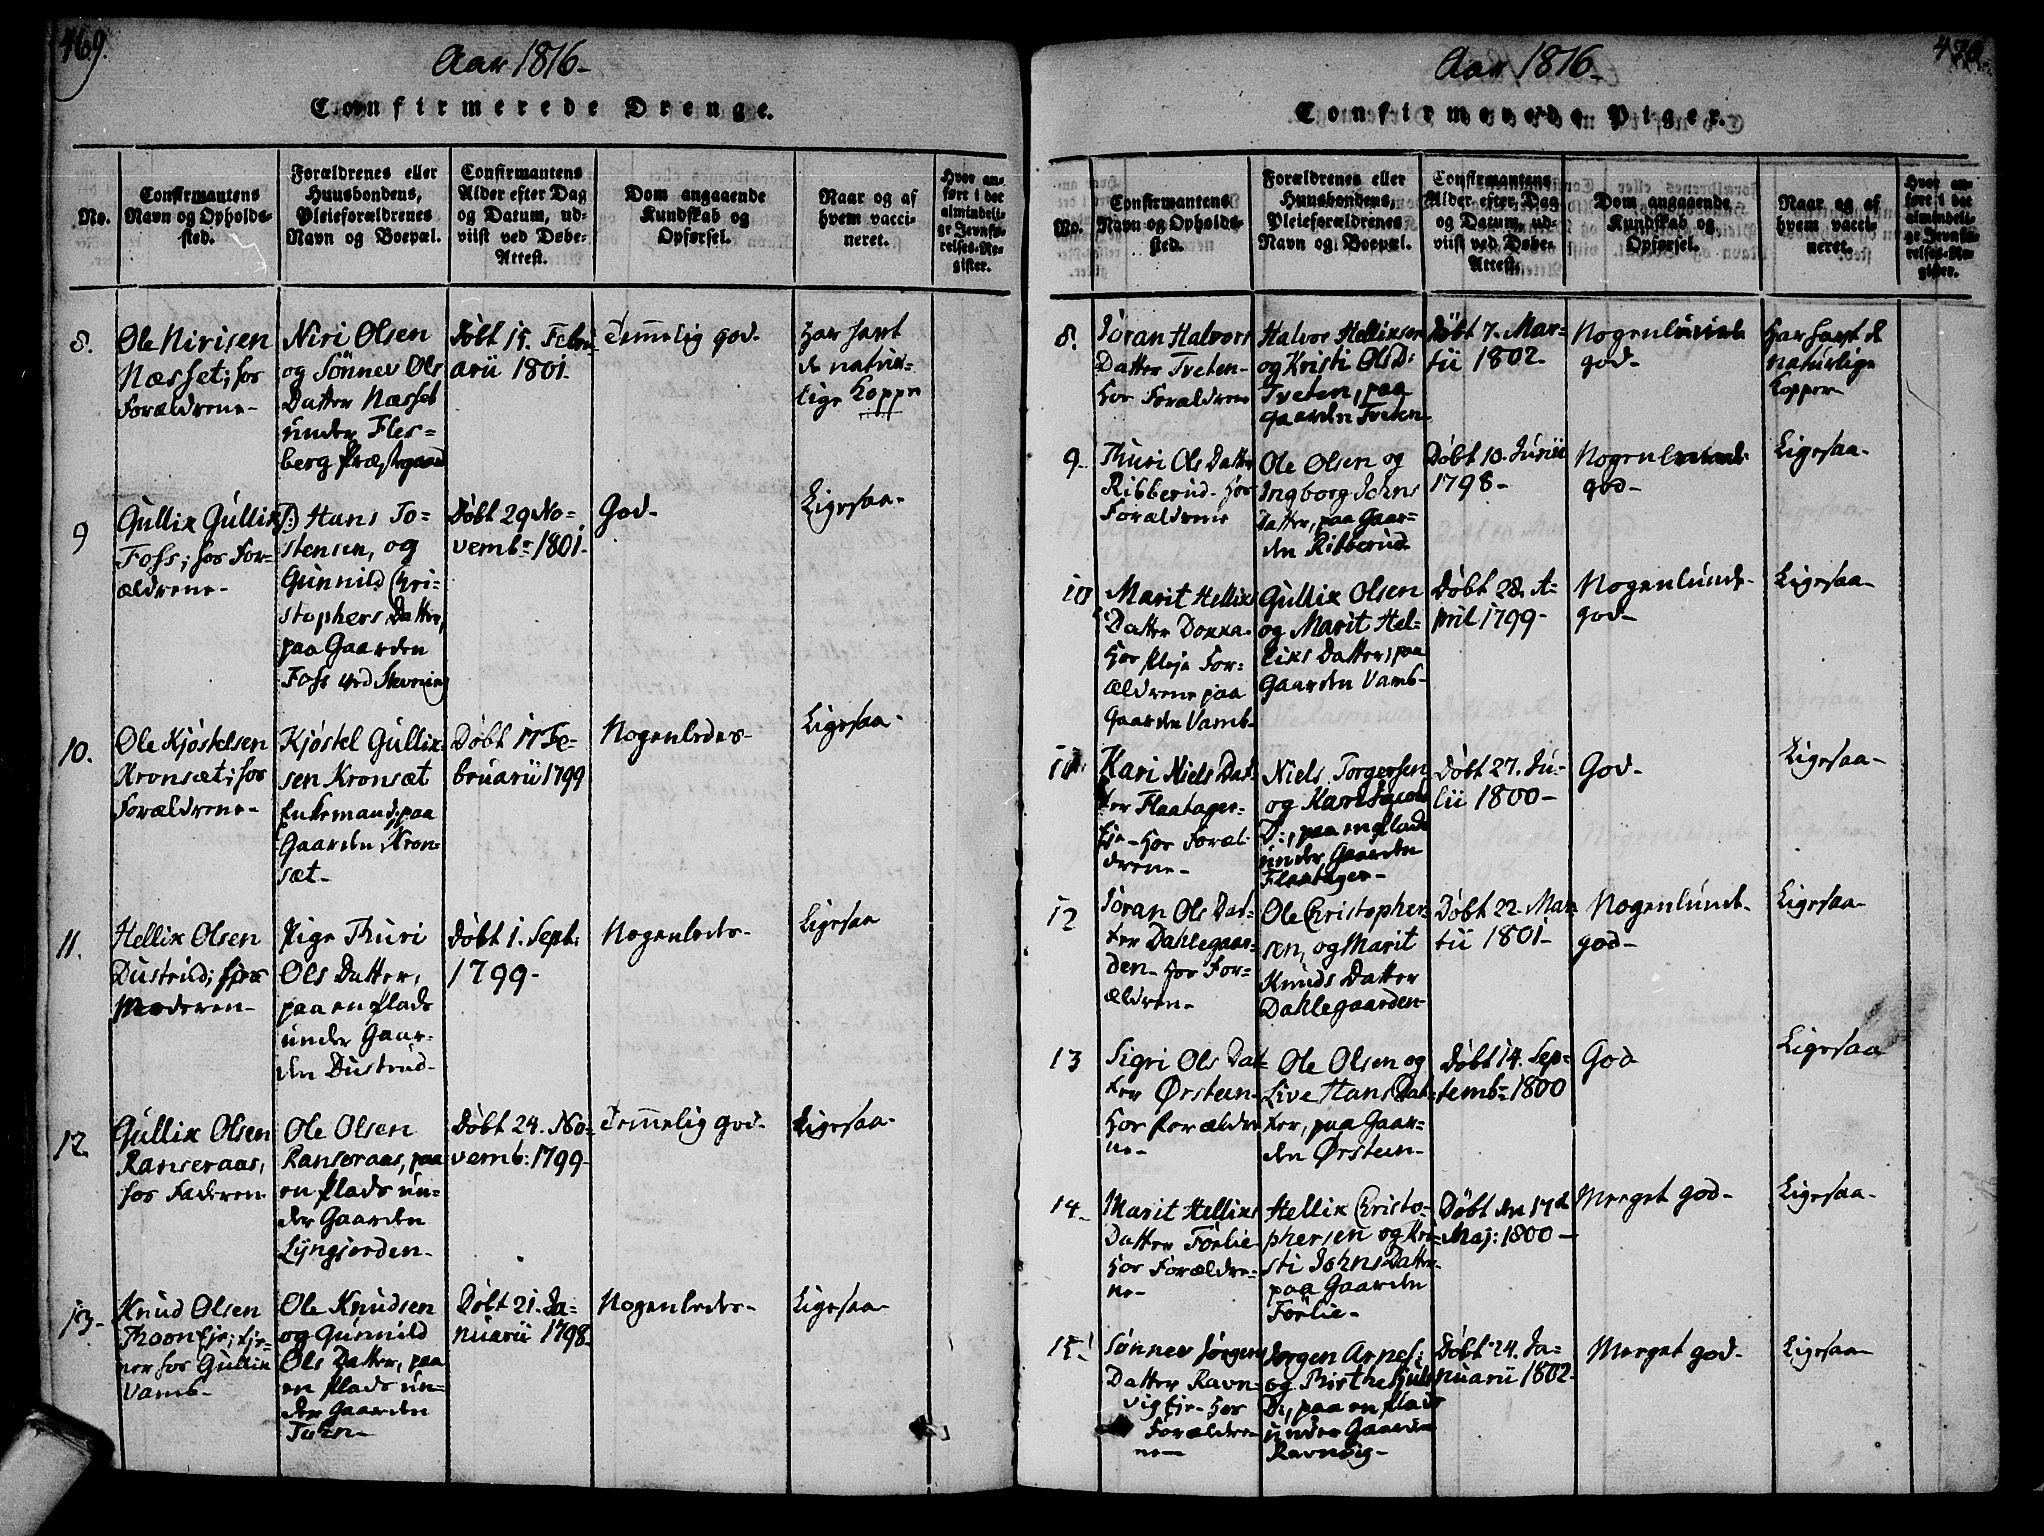 469.
Aar 1816-
Confirmerede Drenge.
No.
Confirmantens
Navn og Opholds-
sted.
Forældrenes eller
Huusbondens,
Pleieforældrenes
Navn og Boepæl.
Confirmantens
Alder efter Dag
og Datum, ud-
viist ved Døbe-
Attest.
Dom angaaende
Kundskab og
Opførsel.
Naar og af
hvem vacci-
neret.
Hvor an-
ført i det
almindeli-
ge Jevnfø-
relses-Re-
gister.
8.
Ole Nirisen
Næsset; hos
Forældrene-
Niri Olsen
og Sønnev Ols
Datter Næsset
under Fles=
berg Præstegaard
Døbt 15. Febru-
arii 1801.
Temmelig god.
Har havt
de natur=
lige Kopper
9
Gullix Gulliks:
Foss; hos For-
ældrene-
Hans To=
stensen, og
Gunnild Chri=
stophers Datter,
paa Gaarden
Foss ved Stevning
Døbt 29 No=
vembr 1801.
God-
Ligesaa-
10.
Ole Kjøstelsen
Kronsæt; hos
Forældrene-
Kjøstel Gullix-
sen Kronsæt
Enkemand; paa
Gaarden Kron=
sæt-
Døbt 17 Fe=
bruarii 1799
Nogenledes-
Ligesaa-
11.
Hellix Olsen
Dustrud; hos
Moderen-
Pige Thuri
Ols Datter,
paa en Plads
under Gaar=
den Dustrud-
Døbt 1. Sept:
1799-
Nogenledes-
Ligesaa
12.
Gullix Olsen
Ranseraas,
hos Faderen
Ole Olsen
Ranseraas, paa
en Plads un=
der Gaarden
Lyngjorden-
Døbt 24. No=
vemb: 1799-
Temmelig god-
Ligesaa-
13-
Knud Olsen
Thoon Eje; tje=
ner hos Gullix
Vamb-
Ole Knudsen
og Gunnild
Ols Datter, paa
en Plads un=
der Gaarden
Tohn-
Døbt 21. Ja=
nuarii 1798.
Nogenledes-
Ligesaa-
470.
Aar 1816-
Confirmerede Piger.
No.
Confirmantens
Navn og Opholds-
sted.
Forældrenes eller
Huusbondens,
Pleieforældrenes
Navn og Boepæl.
Confirmantens
Alder efter Dag
og Datum, ud-
viist ved Døbe-
Attest.
Dom angaaende
Kundskab og
Opførsel.
Naar og af
hvem vacci-
neret.
Hvor an-
ført i det
almindeli-
ge Jevnfø-
relses-Re-
gister.
8.
Jøran Halvors
Datter Tveten-
Hos Forældrene
Halvor Hellixsen
og Kristi Ols D:
Tveten, paa
Gaarden Tveten
Døbt 7. Mar=
tii 1802-
Nogenlunde
god-
Har havt de
naturlige
Kopper-
9-
Thuri Ols Datter
Ribberud- Hos
Forældrene
Ole Olsen og
Ingborg Johns
Datter, paa Gaar=
den Ribberud-
Døbt 10. Junii
1798-
Nogenlunde
god-
Ligesaa-
10
Marit Hellix
Datter Dokka-
Hos Pleje For=
ældrene paa
Gaarden Vamb-
Gullix Olsen
og Marit Hel=
lixs Datter, paa
Gaarden Vamb-
Døbt 28. A=
pril 1799-
Nogenlunde-
god-
Ligesaa-
11.
Kari Niels Dat=
ter Flaatager=
Eje- Hos Foræl=
drene-
Niels Torgersen
og Kari
D:, paa en Plads
under Gaarden
Flaatager-
Døbt 27. Ju=
lii 1800-
God-
Ligesaa-
12
Jøran Ols Dat=
ter Dahlegaar=
den- Hos For=
ældren-
Ole Christopher
sen, og Marit
Knuds Datter
Dahlegaarden-
Døbt 22. Mar
tii 1801-
Nogenlund-
god-
Ligesaa-
13
Sigri Ols Dat
ter Ørsteen-
Hos Forældre
ne-
Ole Olsen og
Live Hans Dat=
ter, paa Gaar=
den Ørsteen-
Døbt 14. Sep=
temb- 1800
God
Ligesaa
14-
Marit Hellixs
Datter Førlie-
Hos Forældre=
ne-
Hellix Christo=
phersen og Kri=
sti Johns Datter-
paa Gaarden
Førlie-
Døbt den 17de
Maj: 1800-
Meeget god-
Ligesaa-
15.
Sønnev Jørgens
Datter Ravn=
vig Eje- Hos
Forældre
ne-
Jørgen Arnes:
og Birthe
D:, paa en Plads
under Gaarden
Ravnvig-
Døbt 24. Ja=
nuarii 1802-
Meeget god-
Ligesaa-